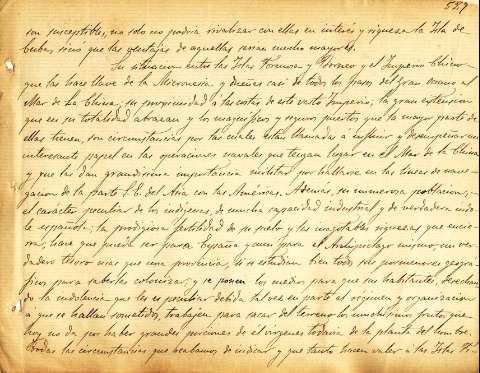 527
son susceptibles, no solo no podria rivalizar con ellas en interés y riqueza la Isla de
Cuba, sino que las ventajas de aquellas serian mucho mayores.
Su situacion entre las Islas Formosa y Borneo y el Imperio Chino
que las hace llave de la Micronesia, y dueñas casi de todos los pasos del Gran Oceano al
Mar de la China; su proximidad á las costas de este vasto Imperio, la gran extension
que en su totalidad abrazan y los magnificos y seguros puertos que la mayor parte de
ellas tienen, son circunstancias por las cuales están llamadas a influir y desempeñar un
interesante papel en las operaciones navales que tengan lugar en el Mar de la China
y que las dan grandisima importancia militar por hallarse en las lineas de nave-
gacion de la parte S.E. del Asia con las Américas. Ademas, su numerosa poblacion,
el carácter peculiar de los indígenas, de mucha capacidad industrial y de verdadera indo-
le española; la prodigiosa fertilidad de su suelo y las inagotables riquezas que encie-
rra, hace que pueda ser para España y aun para el Archipielago mismo, un ver-
dadero tesoro mas que una provincia, si se estudian bien todos sus pormenores geográ-
ficos para saberlas colonizar, y se ponen los medios para que sus habitantes, desechan-
do la indolencia que les es peculiar debida tal vez en parte al régimen y organizacion
a que se hallan sometidos, trabajen para sacar del terreno los muchisimos frutos que
hoy no da por haber grandes porciones de él vírgenes todavia de la planta del hombre.
Todas las circunstancias que acabamos de indicar y que tanto hacen valer á las Islas